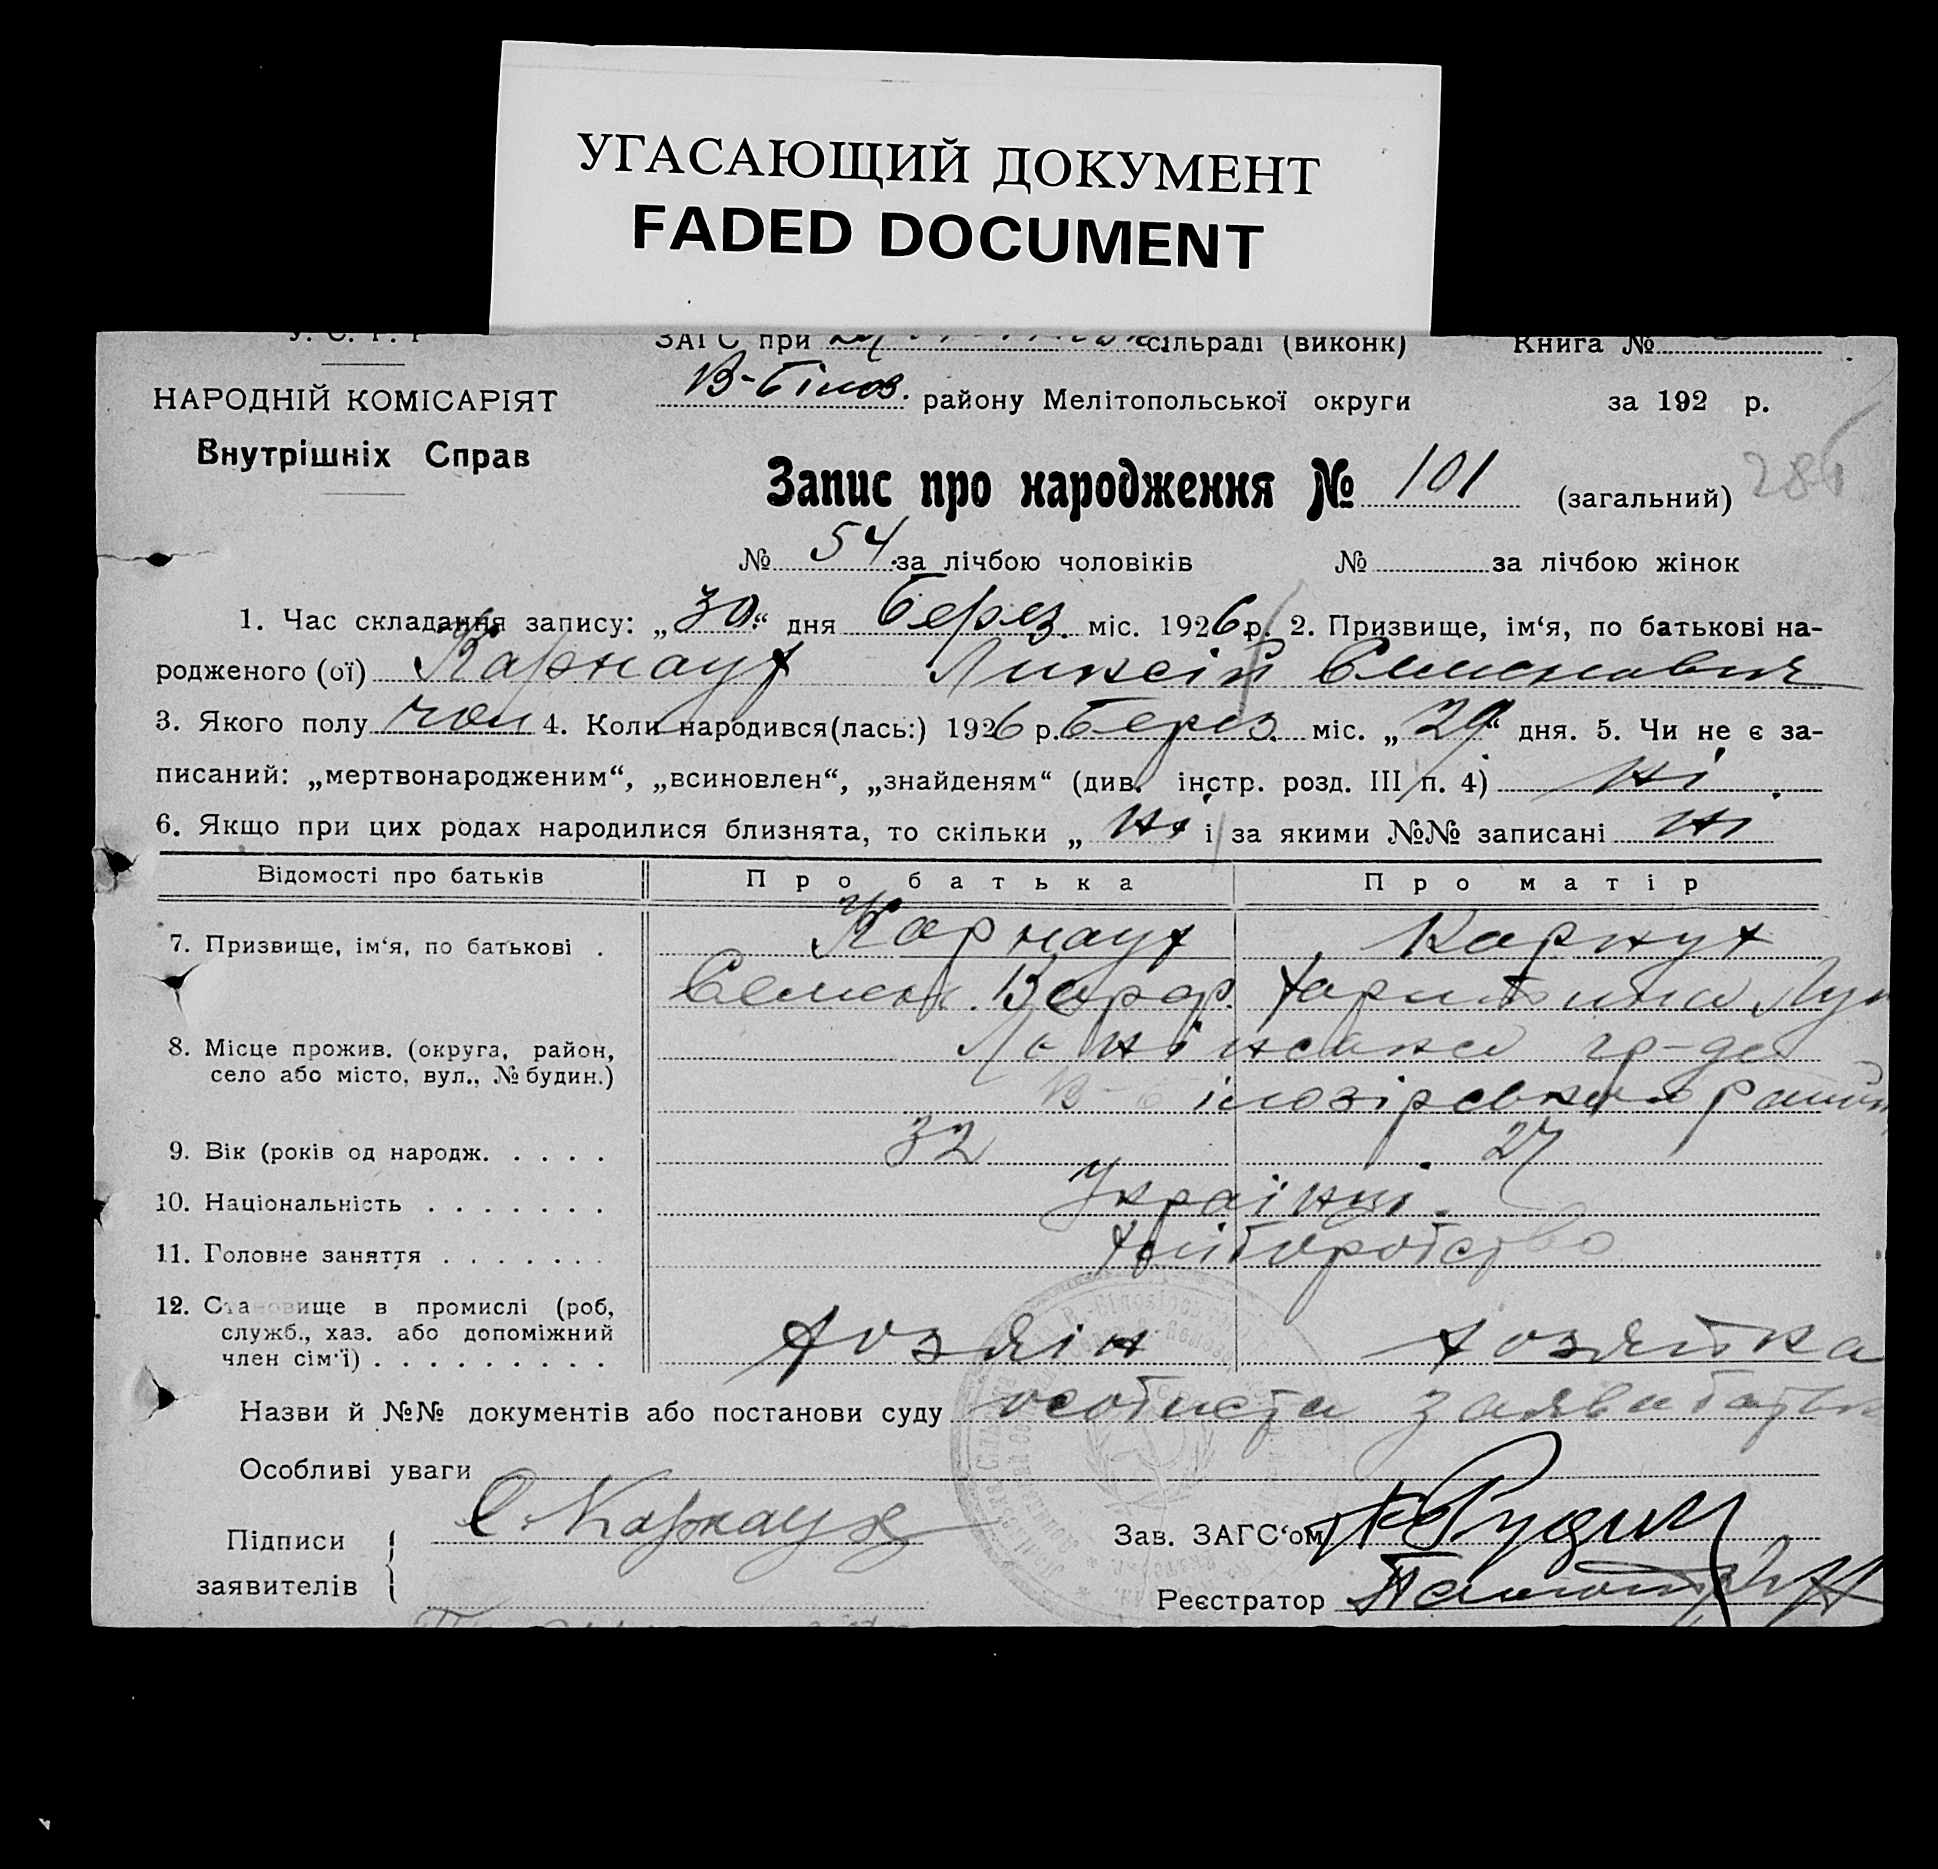 УГАСАЮЩИЙ ДОКУМЕНТ
FADED DOCUMENT
У. С. Р. Р
ЗАГС при сільраді (виконк) Книга №
НАРОДНІЙ КОМІСАРІЯТ
В-Білоз. району Мелітопольської округи за 192 р.
Внутрішніх Справ
Запис про народження № 101 (загальний) 286
№ 54 за лічбою чоловіків № за лічбою жінок
1. Час складання запису: „30“ дня Берез. міс. 1926 р. 2. Призвище, ім‘я, по батькові на-
родженого (ої) Карнаух Ликсій Семенович
3. Якого полу чол 4. Коли народився(лась:) 1926 р. Берез. міс. „29“ дня. 5. Чи не є за-
писаний: „мертвонародженим“, „всиновлен“, „знайденям“ (див. інстр. розд. III п. 4) ні
6. Якщо при цих родах народилися близнята, то скільки „ ні і за якими №№ записані ні
Відомості про батьків Про батька Про матір
7. Призвище, ім‘я, по батькові . Карнаух Карнух
Семен. Варф. Харитина Лук
8. Місце прожив. (округа, район,
село або місто, вул., № будин.)
гр-де
В-Білозірського район
9. Вік (років од народж. . . . . 32 27
10. Національність . . . . . . . Українці.
11. Головне заняття . . . . . . . Хліборобство
12. Становище в промислі (роб,
служб., хаз. або допоміжний
член сім‘ї) . . . . . . . . . Хозяін Хозяйка
Назви й №№ документів або постанови суду особиста заява батьк
Особливі уваги
Підписи
заявителів
С. Карнаух
Зав. ЗАГС‘ом
Реєстратор